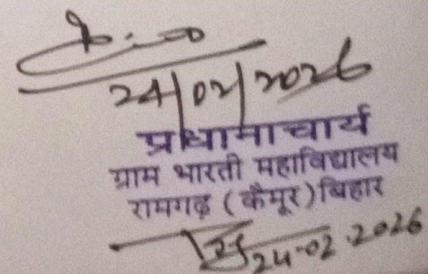 24/02/2026
प्रधानाचार्य
ग्राम भारती महाविद्यालय
रामगढ़ (कैमूर) बिहार
24-02-2026